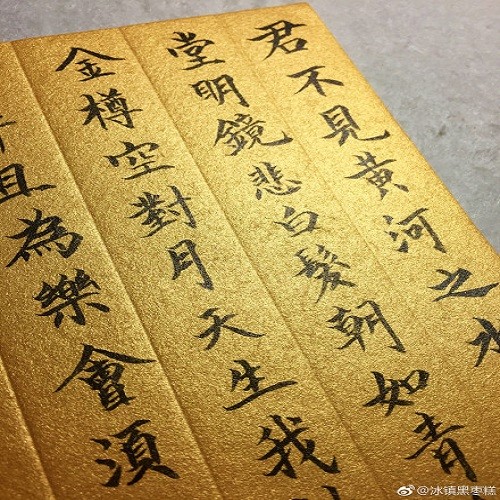 君不見黃河之水
堂明鏡悲白髮朝如青
金樽空對月天生我
且為樂會須
@冰镇黑枣糕